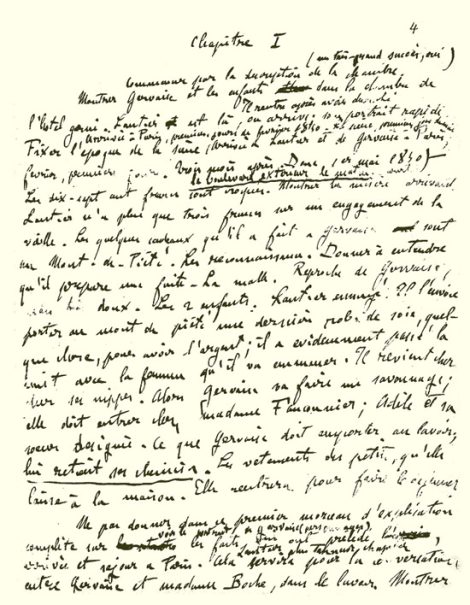 4
Chapitre I
(un très grand succès, oui)
Commencer par la description de la chambre.
Montrer Gervaise et les enfants dans la chambre de
Il rentre après avoir
l'hôtel garni. Lantier est là, ou arrive. son portrait rapide
Arrivée à Paris, premiers jours de février 1850.
Fixer l'époque de la scène, arrivée Lantier et de Gervaise à Paris,
février, premiers jours. Trois mois après. Donc, 1er mai 1850
le boulevard extérieur le matin
Les dix-sept cent francs sont croqués. Montrer la misère arrivant
Lantier n'a plus que trois francs sur un engagement de la
veille. Les quelques cadeaux qu'il a fait à Gervaise sont
au Mont-de-Piété. Les reconnaissances. Donner à entendre
qu'il prépare une fuite. La malle. Reproche de Gervaise,
doux. Les 2 enfants. Lantier ennuyé. Il l'envoie
porter au mont de piété une dernière robe de soie, quel-
que chose, pour avoir l'argent; il a évidemment passé la
nuit avec la femme qu'il va emmener. Il revient cher
cher ses nippes. Alors Gervaise va faire un savonnage;
elle doit entrer chez madame Fauconnier; Adèle et sa
soeur désignée. Ce que Gervaise doit emporter au lavoir,
lui retient ses chemises. Les vêtements des petits, qu'elle
laisse à la maison. Elle rentrera pour faire le déjeuner
Ne pas donner dans ce premier morceau d'explication
voir le portrait de Gervaise
complète sur les faits qui ont précédé,
Lantier plus tard
arrivée et séjour à Paris. Cela servira pour la conversation
entre Gervaise et madame Boche, dans le lavoir. Montrer